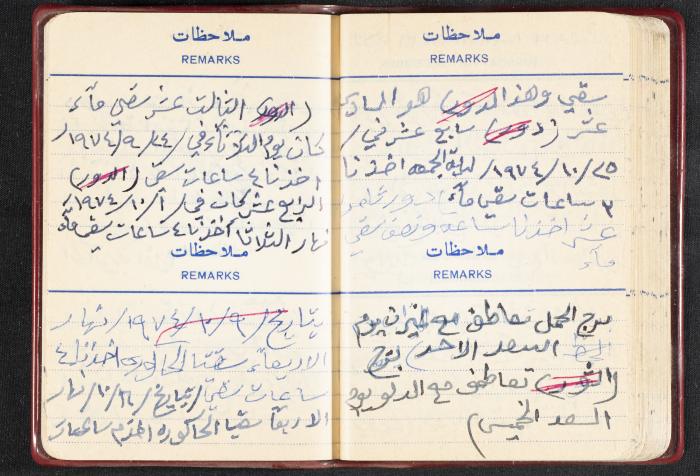 ملاحظات
REMARKS
(الدور) الثالث عشر سقي ماء
كان يوم الثلاثاء في /٢٤/٩/١٩٧٤/
اخذنا ٤ ساعات سقي (الدور)
الرابع عشر كان في /١/١٠/١٩٧٤/
نهار الثلاثا اخذنا ٤ ساعات سقي ماء
ملاحظات
REMARKS
بتاريخ /٩/١٠/١٩٧٤/ نهار
الاربعاء سقينا الحاكوره اخذنا ٤
ساعات سقي / بتاريخ /١٦/١٠/ نهار
الاربعا سقينا الحاكوره ساعات
ملاحظات
REMARKS
سقي وهذا الدور) هو السادس
عشر (دور) سابع عشر في /
٢٥/١٠/١٩٧٤/ ليلة الجمعه اخذنا
٣ ساعات سقي ماء دور
عشر اخذنا ساعه ونصف سقي
ماء
ملاحظات
REMARKS
برج الحمل تعاطف مع الميزان يوم
السعد الاحد) برج
(الثور) تعاطف مع الدلو يوم
السعد الخميس)